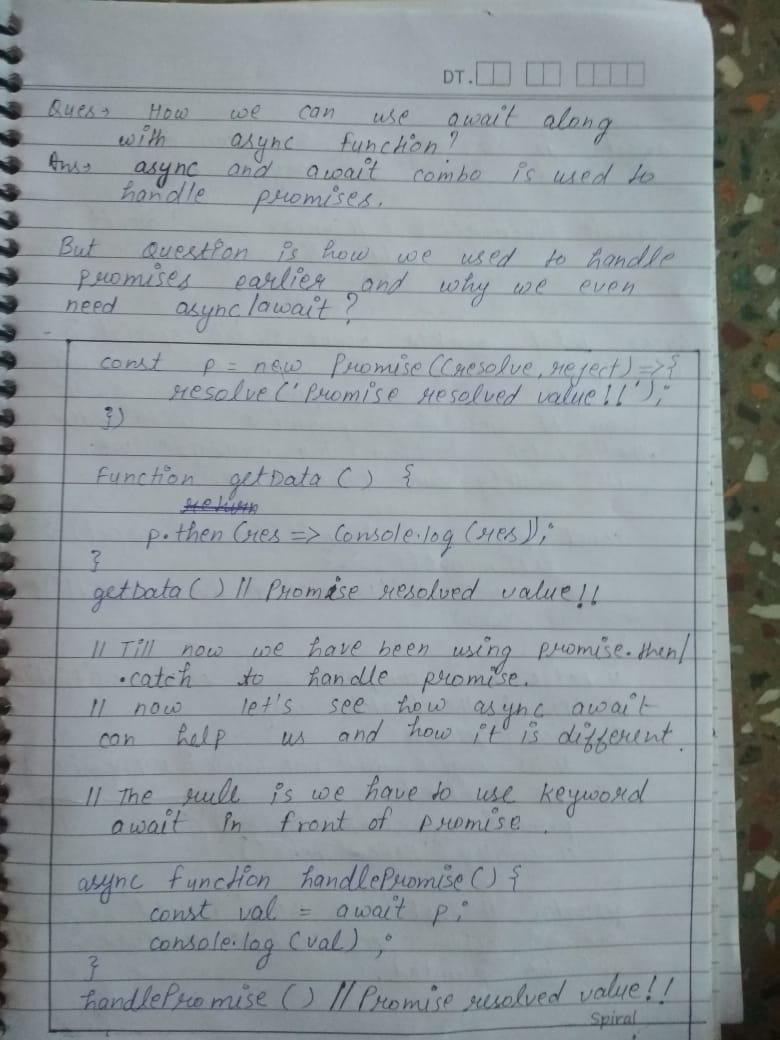 DT.
Ques→ How we can use await along
with async function?
Ans→ async and await combo is used to
handle promises.
But question is how we used to handle
promises earlier and why we even
need async/await?
const p = new Promise((resolve, reject) => {
resolve('Promise resolved value!!');
})
function getData () {
return
p.then (res => console.log (res));
}
getData () // Promise resolved value!!
// Till now we have been using promise.then/
.catch to handle promise.
// now let's see how async await
can help us and how it is different.
// The rule is we have to use keyword
await in front of promise.
async function handlePromise () {
const val = await p;
console.log (val) ;
}
handlePromise () // Promise resolved value!!
Spiral